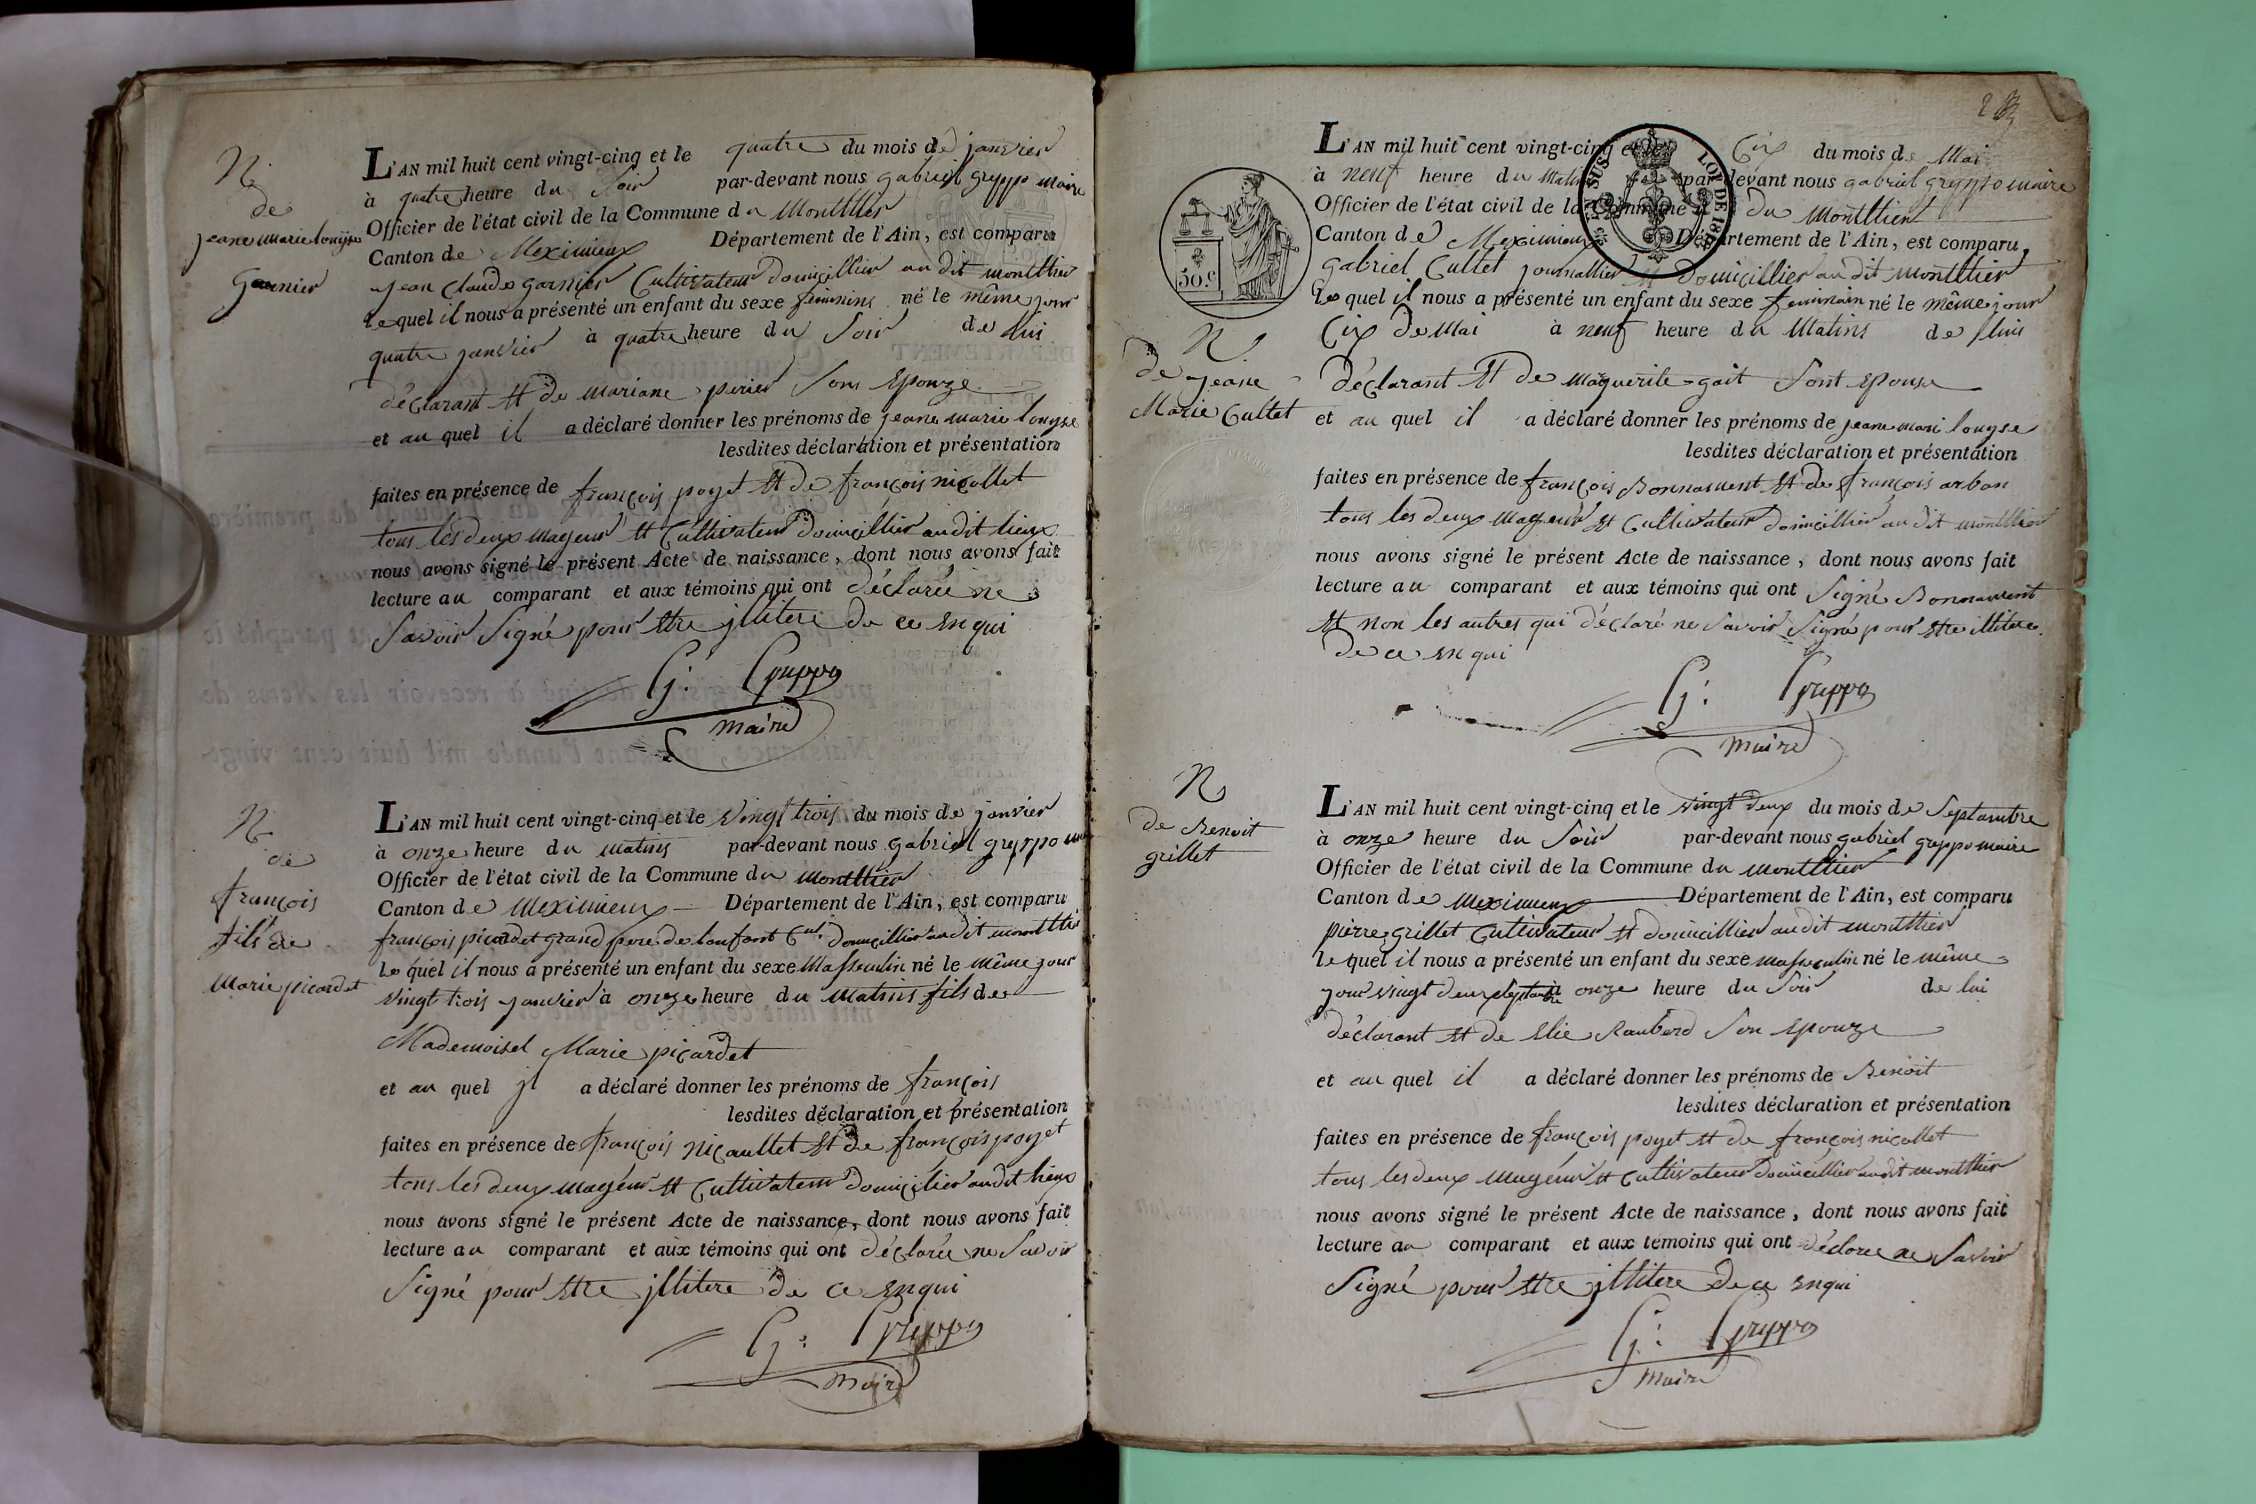 N.
de
jeane marie louijse
Garnier
L'AN mil huit cent vingt-cinq et le quatre du mois de janvier
à quatre heure du Soir par-devant nous gabriel greppo maire
Officier de l'état civil de la Commune du Montllier
Canton de Meximieux Département de l'Ain, est comparu
jean Claude garnier Cultivateur domicillier au dit montllier
le quel il nous a présenté un enfant du sexe feminins né le même jour
quatre janvier à quatre heure du Soir de lui
déclarant Et de mariane perier Sons Epouze
et au quel il a déclaré donner les prénoms de jeane marie louyse
lesdites déclaration et présentation
faites en présence de françois poyet Et de françois nicollet
tous les deux mageur Et Cultivateur Domicillier au dit lieux
nous avons signé le présent Acte de naissance, dont nous avons fait
lecture au comparant et aux témoins qui ont déclarée ne
Savoir Signé pour Etre jllitere de ce Enqui
G: Greppo
maire
N
de
françois
fils de
Marie picardet
L'AN mil huit cent vingt-cinq et le vingt trois du mois de janvier
à onze heure du Matins par-devant nous gabriel greppo
Officier de l'état civil de la Commune du montllier
Canton de Meximieux Département de l'Ain, est comparu
françois picardet grand pere de lenfant Cul. Domicillier au dit montllier
le quel il nous a présenté un enfant du sexe Massculin né le même jour
vingt trois janvier à onze heure du Matins fils de
Mademoisel Marie picardet
et au quel jl a déclaré donner les prénoms de françois
lesdites déclaration et présentation
faites en présence de françois nicaullet Et de françois poyet
tous les deux mageur Et Cultivateur Domicilier au dit lieux
nous avons signé le présent Acte de naissance, dont nous avons fait
lecture au comparant et aux témoins qui ont déclarée ne Savoir
Signé pour Etre jllitere de ce Enqui
G: Greppo
maire
2
50 c
SUS
LOI DE 18
N
de jeane
Marie Cultet
L'AN mil huit cent vingt-cinq et le Cix du mois de Mai
à neuf heure du Matin par-devant nous gabriel greppo maire
Officier de l'état civil de la Commune du Montllier
Canton de Meximieux Département de l'Ain, est comparu
gabriel Cultet journallier Et Domicillier au dit montllier
le quel il nous a présenté un enfant du sexe feminain né le même jour
Cix De Mai à neuf heure du Matins de luis
déclarant Et De Marguerite gait Sont Epouse
et au quel il a déclaré donner les prénoms de jeane mari louyse
lesdites déclaration et présentation
faites en présence de françois Bonnament Et de françois arban
tous les deux Mageur Et Cultivateur domicillier au dit montllier
nous avons signé le présent Acte de naissance, dont nous avons fait
lecture au comparant et aux témoins qui ont Signé Bonnament
Et non les autres qui déclaré ne Savoir Signé pour Etre illitere
De ce En qui
G: Greppo
maire
N
de Benoit
grillet
L'AN mil huit cent vingt-cinq et le vingt deux du mois de Septambre
à onze heure du Soir par-devant nous gabriel greppo maire
Officier de l'état civil de la Commune du montllier
Canton de Meximieux Département de l'Ain, est comparu
pierre grillet Cultivateur Et domicillier au dit montllier
le quel il nous a présenté un enfant du sexe massculin né le même
jour vingt deux septambre onze heure du Soir de lui
déclarant Et de Elie Rauberd Son Epouze
et au quel il a déclaré donner les prénoms de Benoit
lesdites déclaration et présentation
faites en présence de françois poyet Et de françois nicollet
tous les deux Mageur Et Cultivateur Domicillier au dit montllier
nous avons signé le présent Acte de naissance, dont nous avons fait
lecture au comparant et aux témoins qui ont déclaré ne Savoir
Signé pour Etre jllitere De ce Enqui
G: Greppo
maire